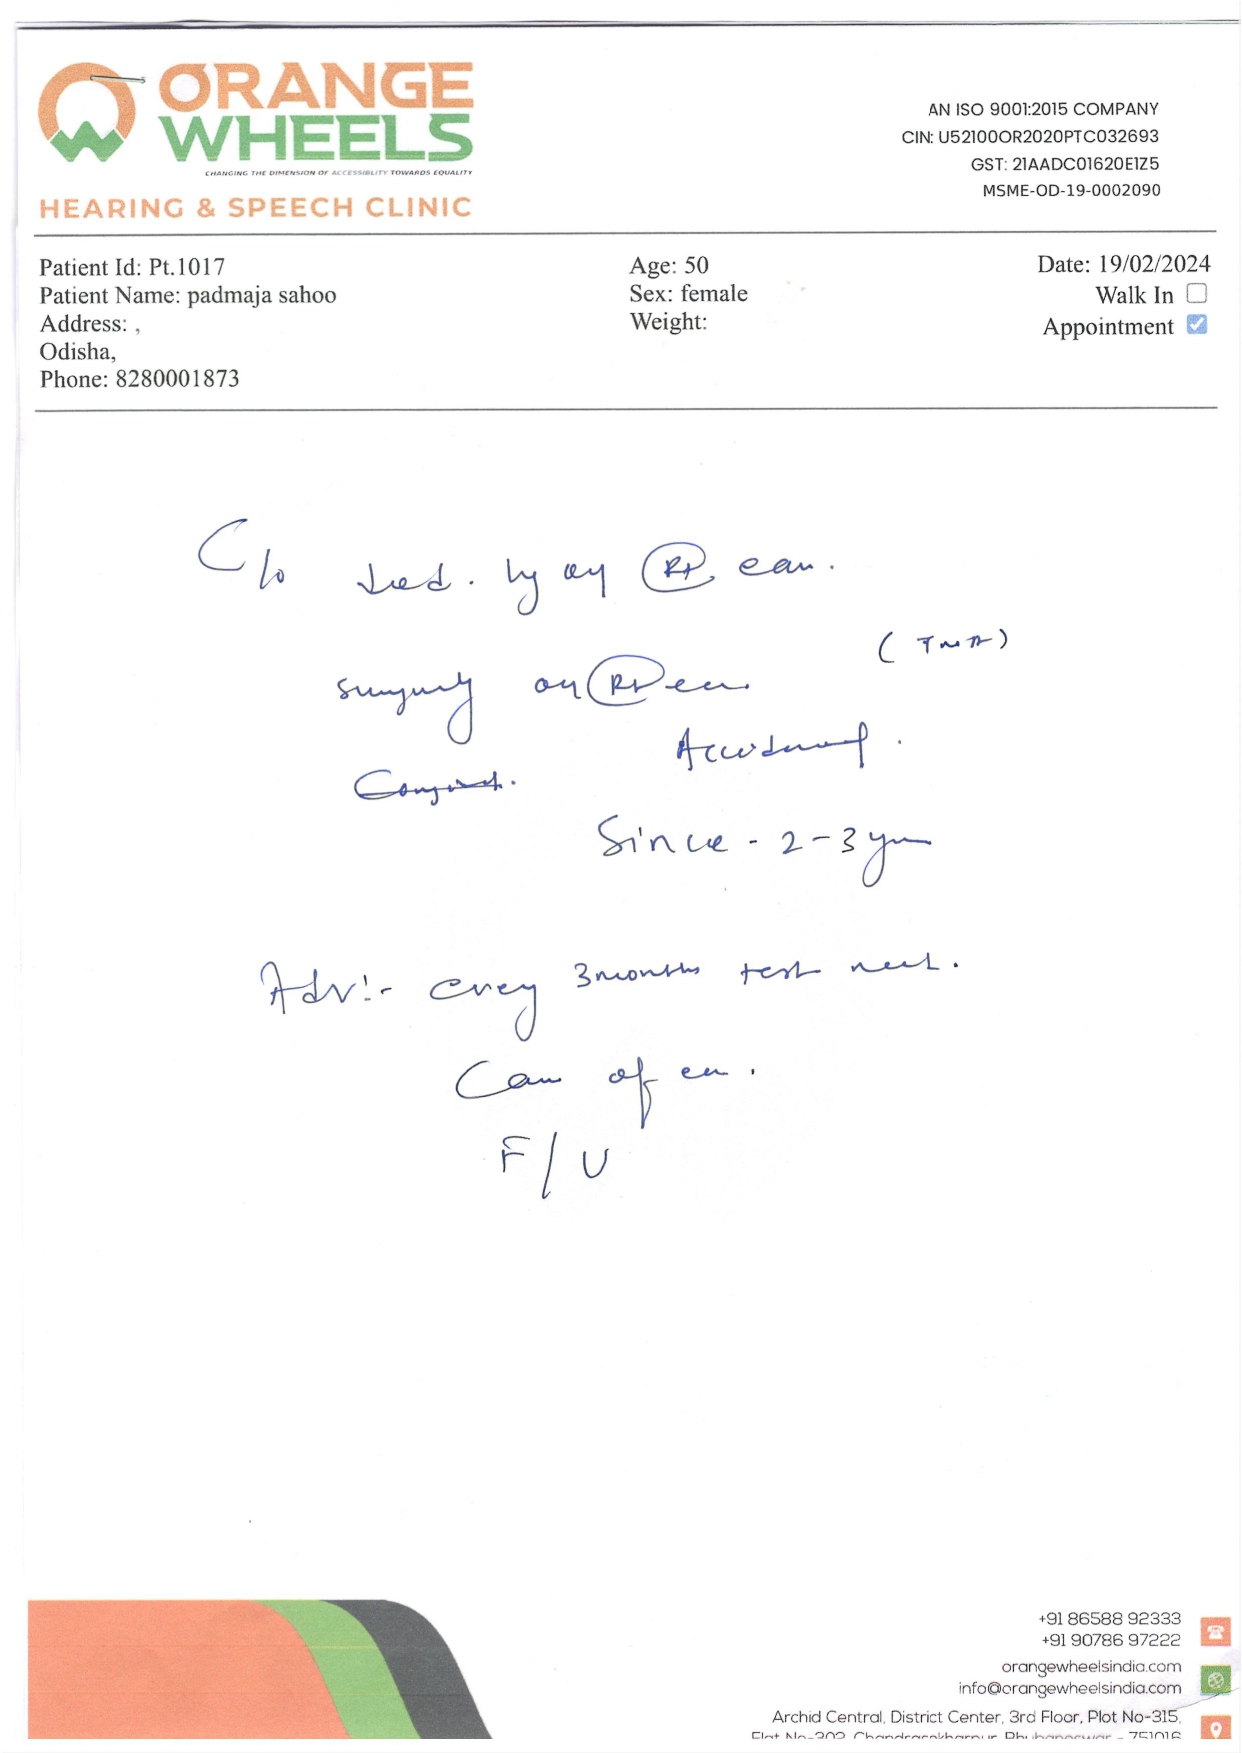 ORANGE
WHEELS
CHANGING THE DIMENSION OF ACCESSIBLITY TOWARDS EQUALITY
HEARING & SPEECH CLINIC
AN ISO 9001:2015 COMPANY
CIN: U52100OR2020PTC032693
GST: 21AADCO1620E1Z5
MSME-OD-19-0002090
Patient Id: Pt.1017
Patient Name: padmaja sahoo
Address: ,
Odisha,
Phone: 8280001873
Age: 50
Sex: female
Weight:
Date: 19/02/2024
Walk In
Appointment
C/o
Rt ear.
surgery on Rt ear
Since - 2-3 yrs
Adv:- every 3months test
Care of ear.
F/U
+91 86588 92333
+91 90786 97222
orangewheelsindia.com
info@orangewheelsindia.com
Archid Central, District Center, 3rd Floor, Plot No-315,
Flat No-302, Chandrasekharpur, Bhubaneswar - 751016